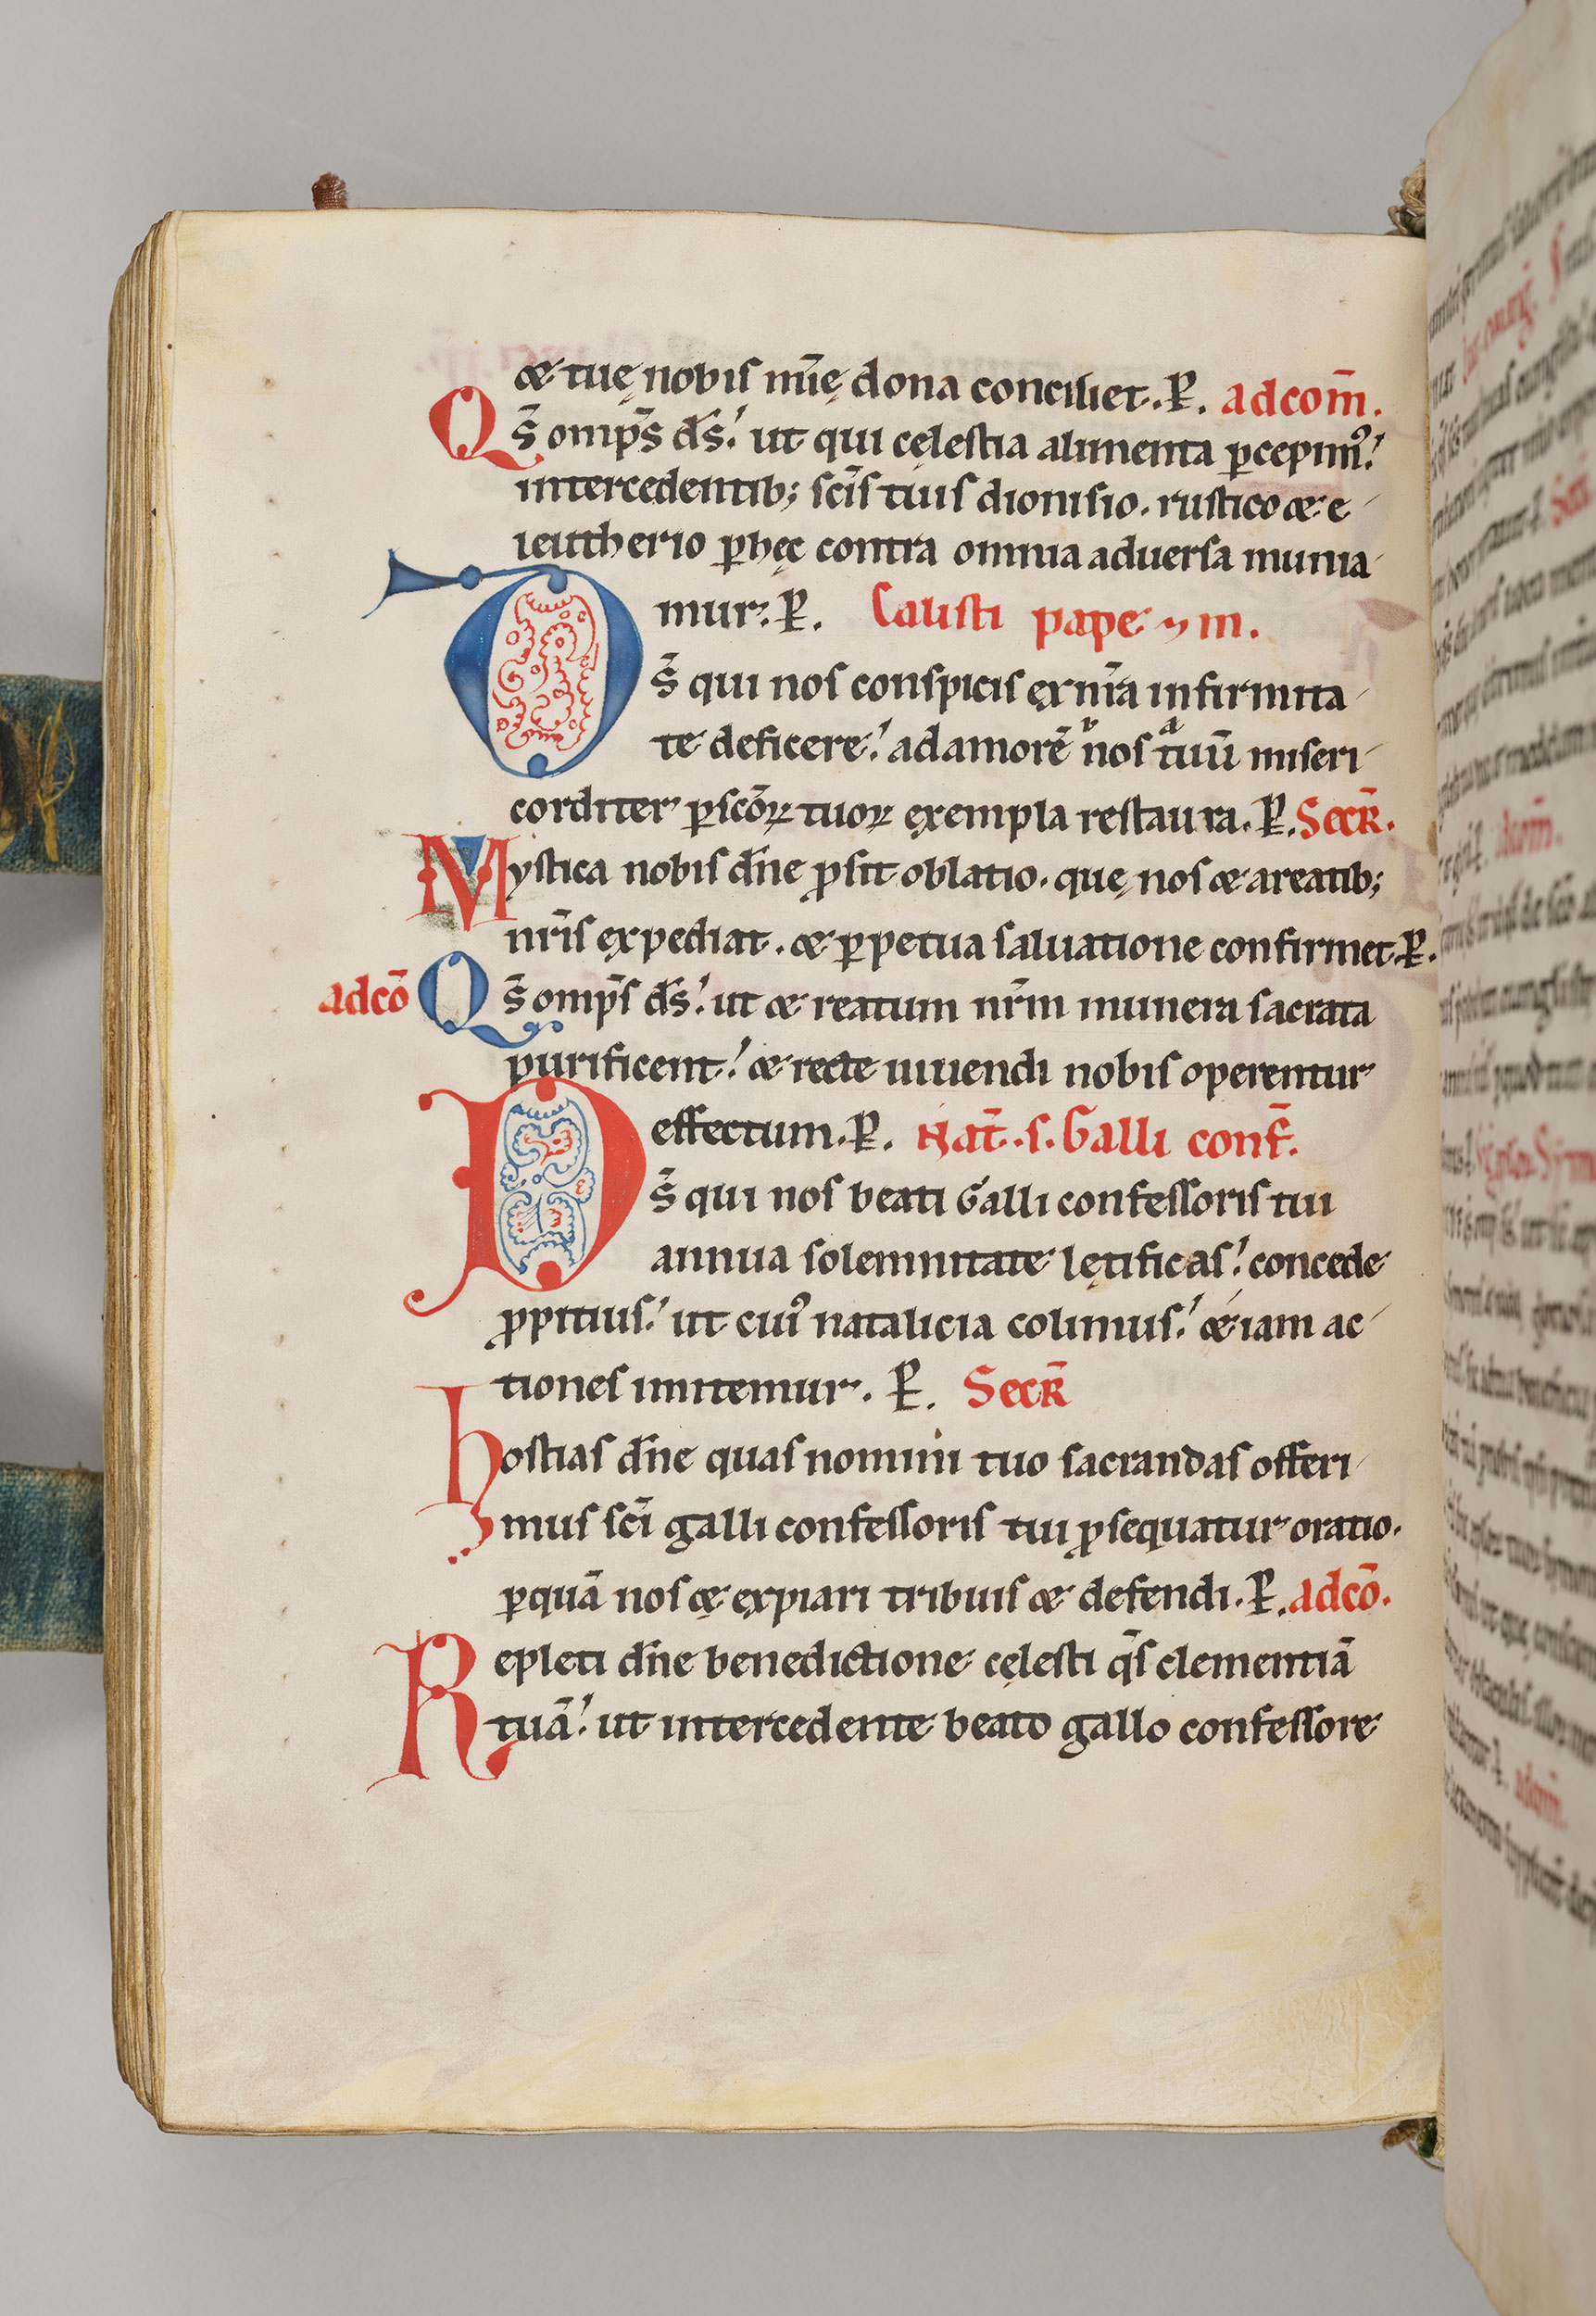 & tuę nobis mīę dona conciliet. P̵. adcom̄.
Qs̄ omp̄s ds̄! ut qui cęlestia alimenta ꝑcepimꝰ!
intercedentib; sc̄is tuis dionisio. rustico & e
leutherio ꝑhęc contra omnia aduersa munia
mur. P̵. Calisti pape & m̄.
Ds̄ qui nos conspicis ex nr̄a infirmita
te deficere! ad amorē ᵇnos ᵃtuū miseri
corditer ꝑ sc̄oꝝ tuoꝝ exempla restaura. P̵. Secr̄.
Mystica nobis dn̄e ꝓsit oblatio. quę nos & a reatib;
nr̄is expediat. & ꝑpetua saluatione confirmet. P̵.
adcō Qs̄ omp̄s ds̄! ut & reatum nr̄m munera sacrata
purificent! & recte uiuendi nobis operentur
effectum. P̵. Nat̄. s. Galli conf̄.
Ds̄ qui nos beati Galli confessoris tui
annua solemnitate lętificas! concede
ꝓpitius! ut cuiꝰ natalicia colimus! &iam ac
tiones imitemur. P̵. Secr̄
hostias dn̄e quas nomini tuo sacrandas offeri
mus sc̄i galli confessoris tui ꝓsequatur oratio.
ꝑ quā nos & expiari tribuis & defendi. P̵. adcō.
Repleti dn̄e benedictione cęlesti qs̄ clementiā
tuā! ut intercedente beato gallo confessore